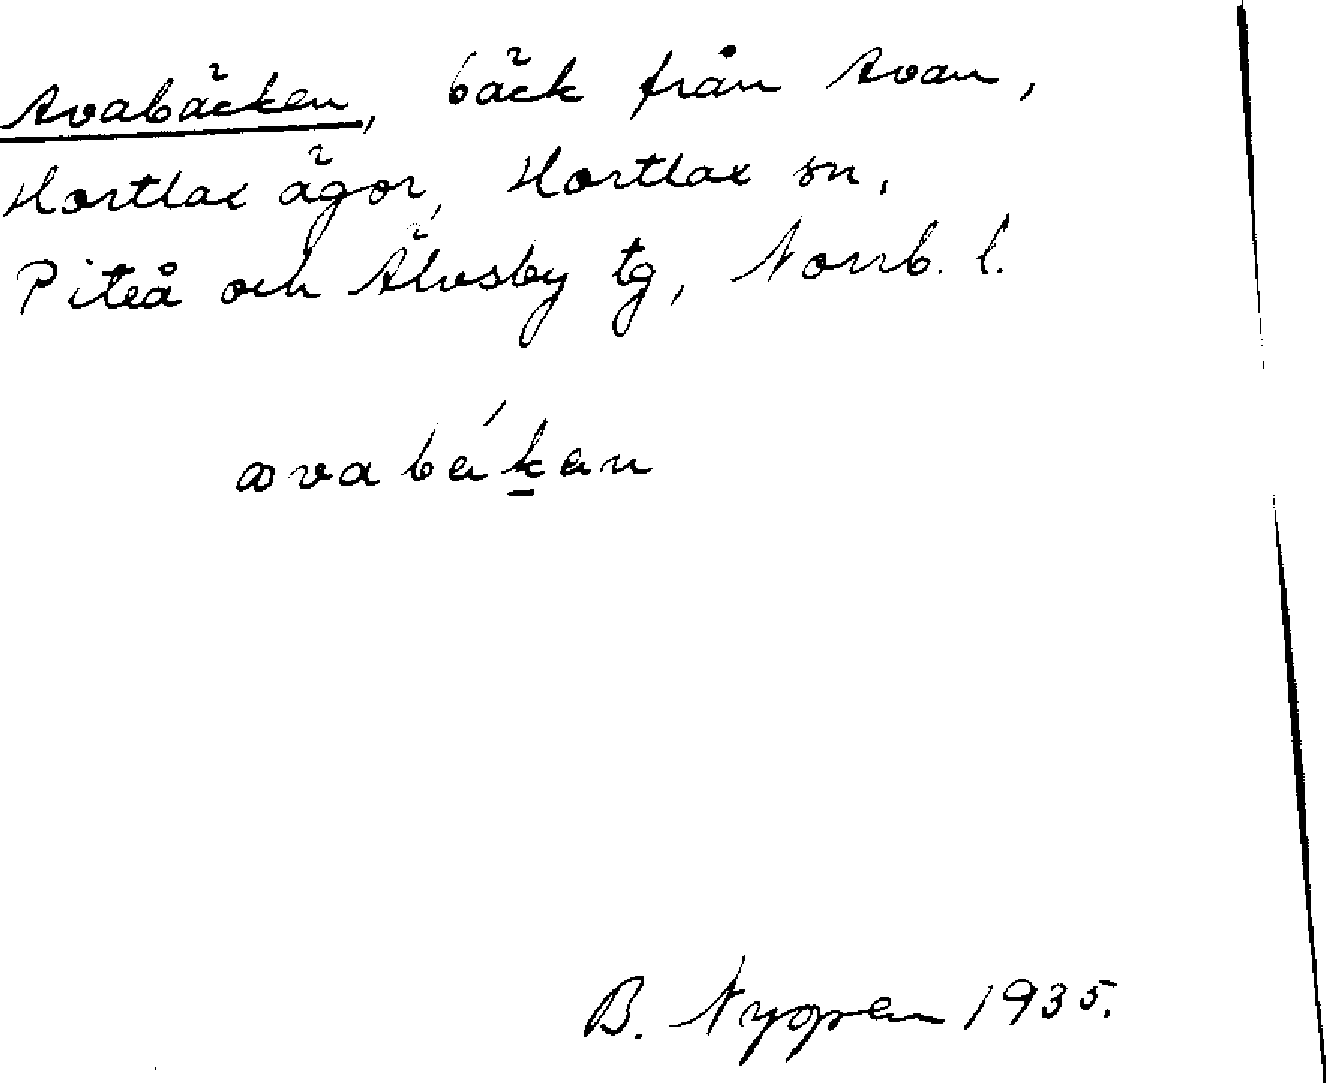 Avabäcken, bäck från Avan,
Hortlax ägor, Hortlax sn,
Piteå och Älvsby tg, Norrb. l.
avabékan
B. Nygren 1935.